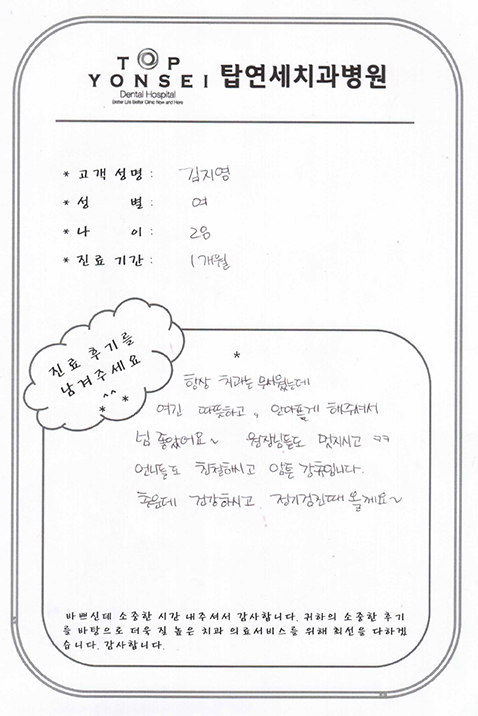 TOP
YONSEI 탑연세치과병원
Dental Hospital
Better Life Better Clinic Now and Here
* 고객 성명 : 김지영
* 성 별 : 여
* 나 이 :
* 진료 기간 : 1개월
진료 후기를
남겨주세요
^^
* *
*
항상 치과는 무서웠는데
여긴 따뜻하고, 안아프게 해주셔서
넘 좋았어요~ 원장님들도 멋지시고 ㅋㅋ
언니들도 친절하시고 암튼 강추입니다.
추운데 건강하시고 정기검진때 올께요~
바쁘신데 소중한 시간 내주셔서 감사합니다. 귀하의 소중한 후기
를 바탕으로 더욱 질 높은 치과 의료서비스를 위해 최선을 다하겠
습니다. 감사합니다.